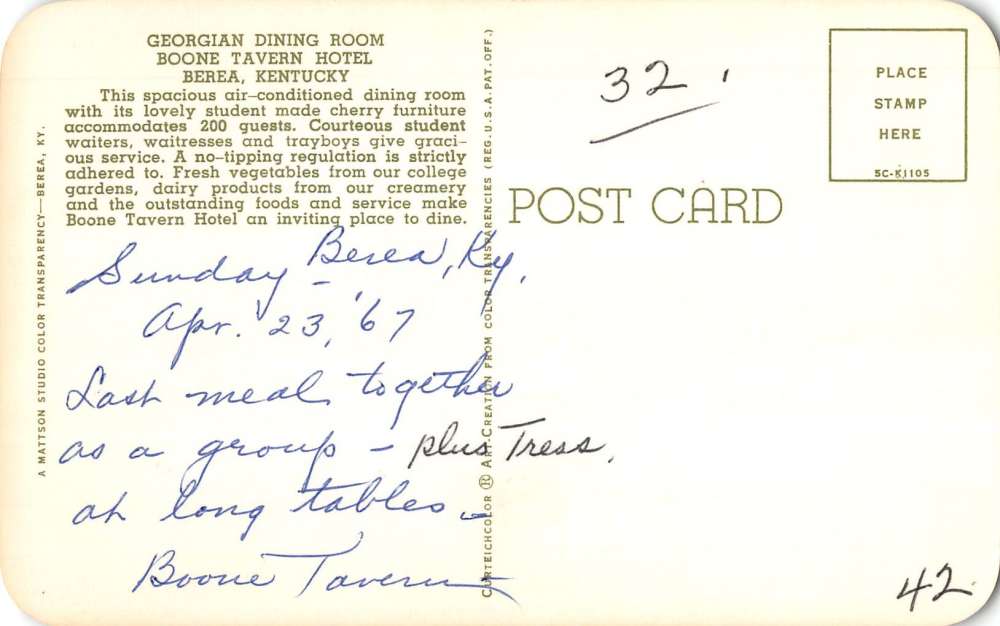 GEORGIAN DINING ROOM
BOONE TAVERN HOTEL
BEREA, KENTUCKY
This spacious air-conditioned dining room
with its lovely student made cherry furniture
accommodates 200 guests. Courteous student
waiters, waitresses and trayboys give graci-
ous service. A no-tipping regulation is strictly
adhered to. Fresh vegetables from our college
gardens, dairy products from our creamery
and the outstanding foods and service make
Boone Tavern Hotel an inviting place to dine.
A MATTSON STUDIO COLOR TRANSPARENCY—BEREA, KY.
Sunday – Berea, Ky.
Apr. 23, '67
Last meal together
as a group – plus Tress.
at long tables –
Boone Tavern
CURTEICHCOLOR ® ART-CREATION FROM COLOR TRANSPARENCIES (REG. U.S.A. PAT. OFF.)
32.
POST CARD
PLACE
STAMP
HERE
5C-K1105
42.